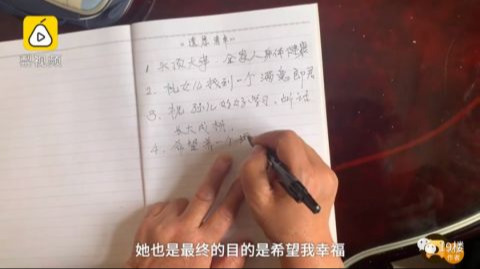 梨视频
遗愿清单
1 永孩大学 全家人身体健康
2. 祝女儿找到一个满意郎君
3. 祝孙儿好好学习，听话
长大成材.
4. 希望养一个
19楼
作者
她也是最终的目的是希望我幸福